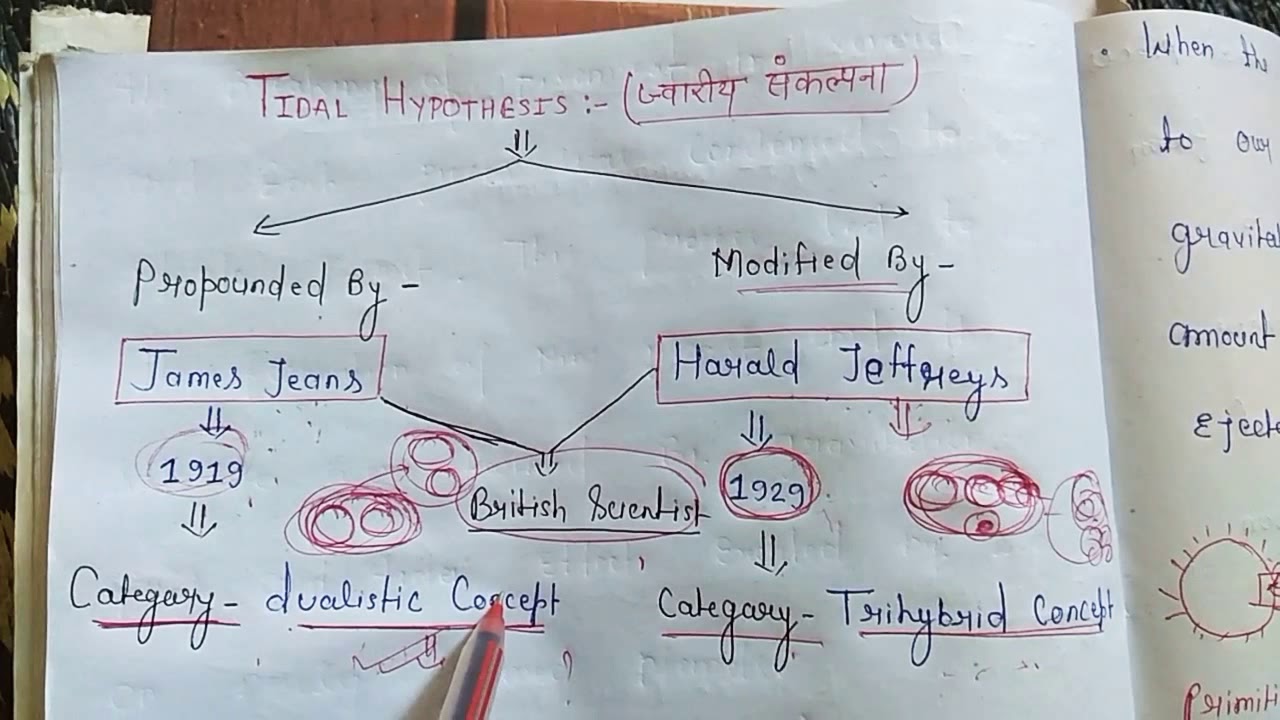 TIDAL HYPOTHESIS :- (ज्वारीय संकल्पना)
Propounded By -
Modified By -
James Jeans
Harald Jeffreys
1919
British Scientist
1929
Category - dualistic Concept
Category - Trihybrid Concept
When the
to our
gravita
amount
Eject
Primiti